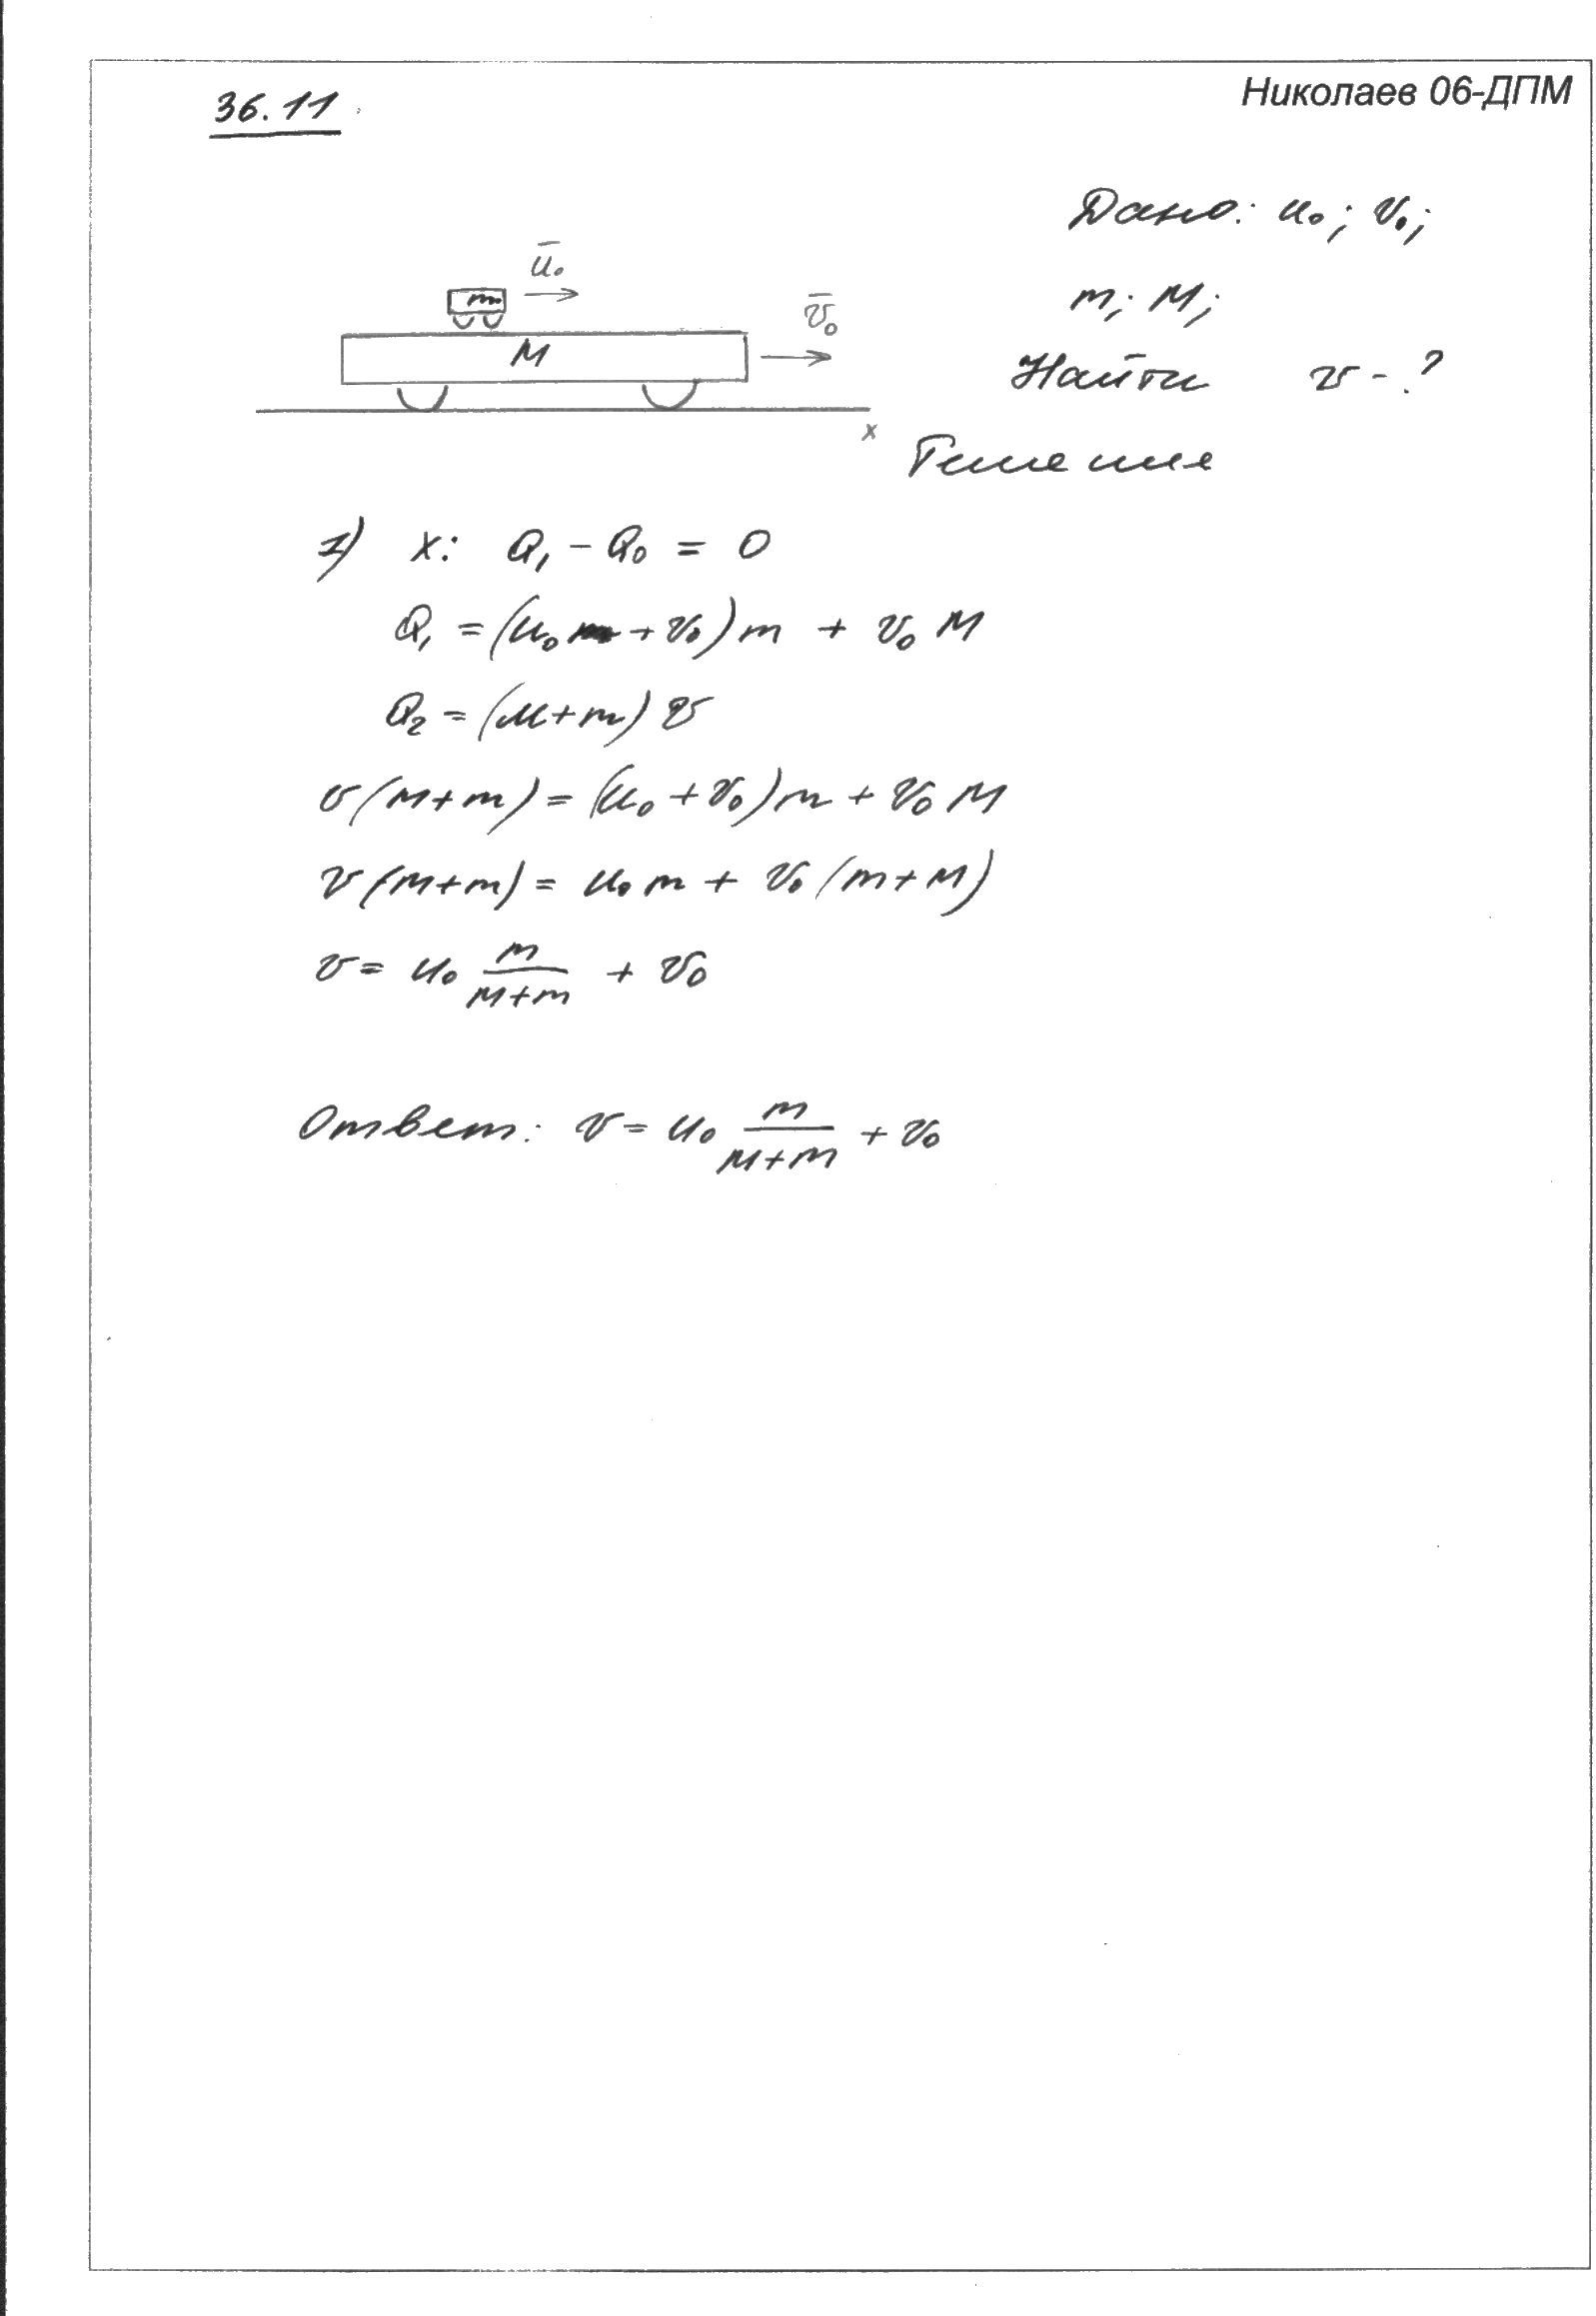 36.11
Николаев 06-ДПМ
Дано: u₀; v₀;
m; M;
Найти v - ?
ū₀
m
v̄₀
M
x
Решение
1) x: Q₁ - Q₀ = 0
Q₁ = (u₀ + v₀)m + v₀ M
Q₂ = (M+m) v
v(M+m) = (u₀ + v₀)m + v₀ M
v(M+m) = u₀ m + v₀(m+M)
v = u₀ m/(M+m) + v₀
Ответ: v = u₀ m/(M+m) + v₀